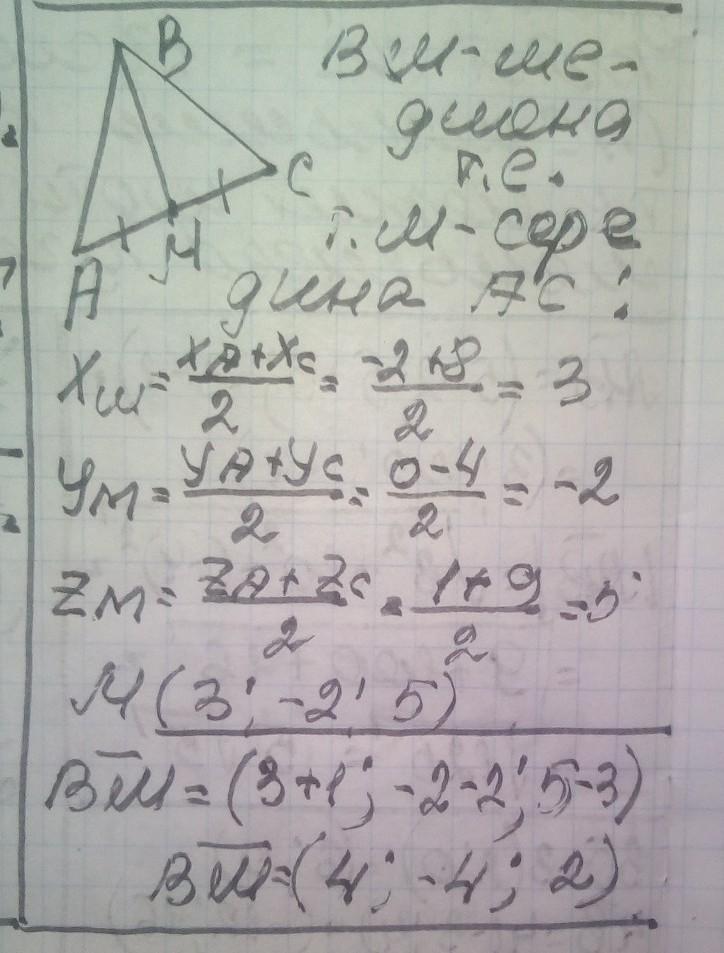 B
C
M
A
BM - ме-
диана
т.е.
т. M - сере
дина AC:
Xм = XA+XC/2 = -2+8/2 = 3
YM = YA+YC/2 = 0-4/2 = -2
ZM = ZA+ZC/2 = 1+9/2 = 5
M (3; -2; 5)
BM = (3+1; -2-2; 5-3)
BM = (4; -4; 2)